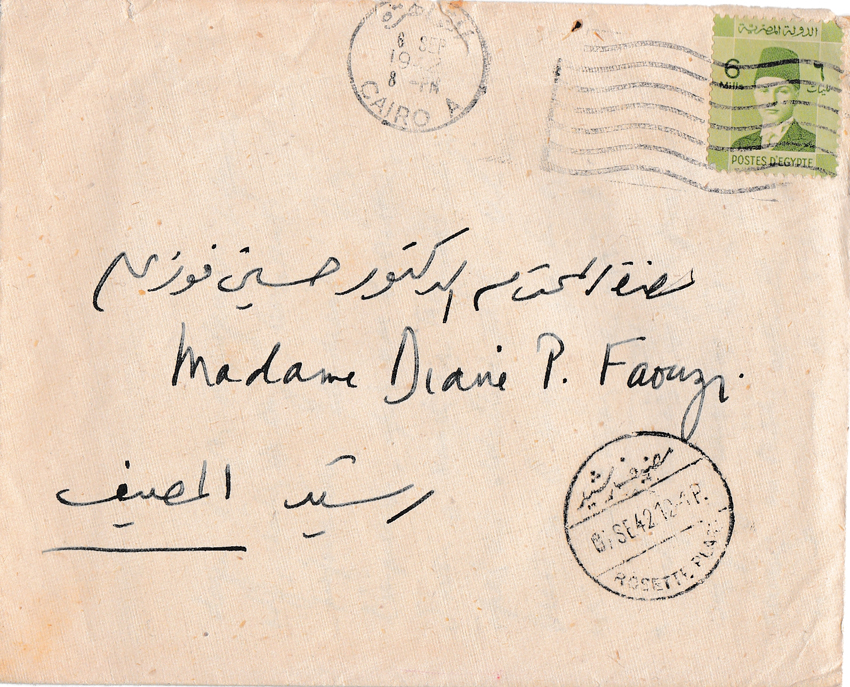 القاهرة
6 SEP
8 - PM
CAIRO A
الدولة المصرية
6 ٦
Mills مليمات
POSTES D'EGYPTE
حضرة المحترم الدكتور حسين فوزي
Madame Diane P. Faouzi.
رشيد المصيف
مصيف رشيد
SE 42 12-1 P.
ROSETTE PLAGE